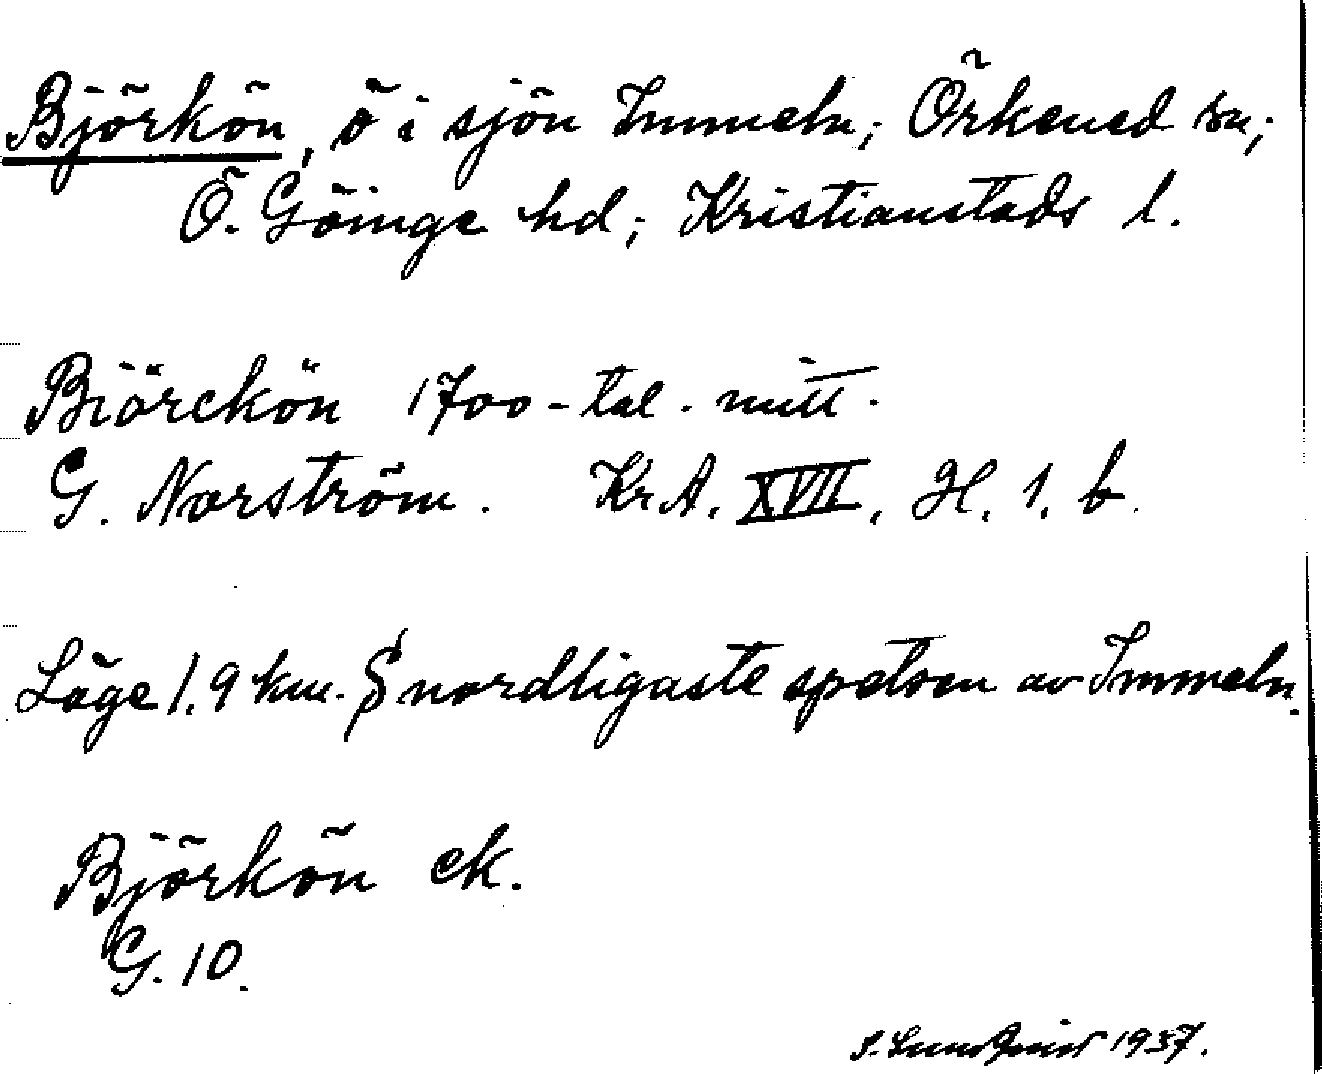 Björkön, ö i sjön Immeln; Örkened sn;
Ö. Göinge hd; Kristianstads l.
Biörckön 1700-tal. mitt.
G. Norström. Kr.A. XVII, H. 1. b.
Läge 1,9 km. S nordligaste spetsen av Immeln.
Björkön ek.
G. 10.
S. Lundquist 1937.